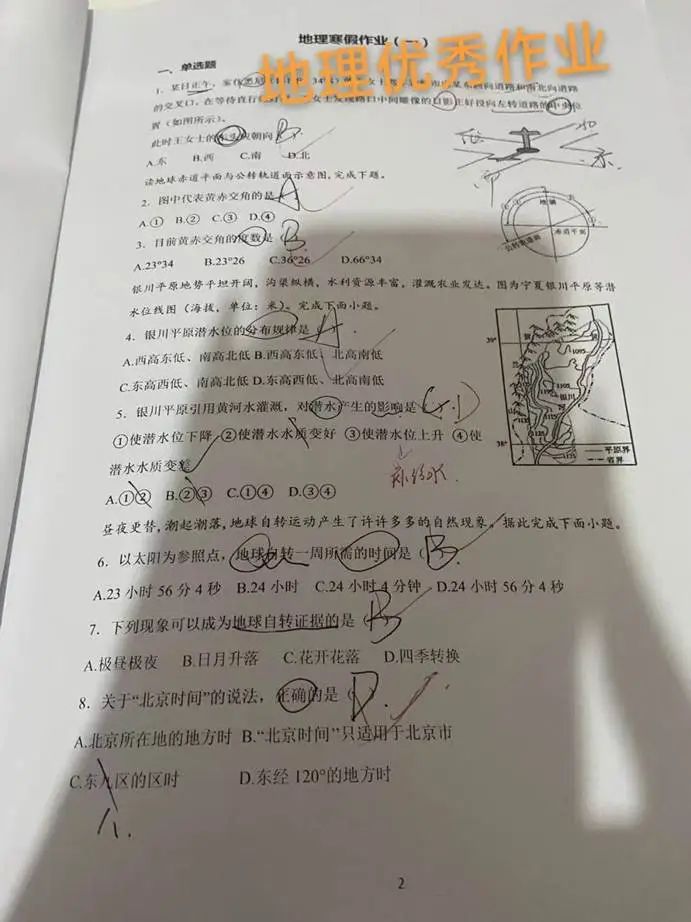 地理寒假作业（一）
地理优秀作业
一、单选题
1. 某日正午，
的交叉口，在等待直行
口中间雕像的日影正好投向左转道路的中央位
置（如图所示）。
此时王女士的车头应朝向 B
A.东 B.西 C.南 D.北
读地球赤道平面与公转轨道面示意图，完成下题。
2. 图中代表黄赤交角的是（A）
A.① B.② C.③ D.④
3. 目前黄赤交角的度数是（B）
A.23°34 B.23°26 C.36°26 D.66°34
地轴
赤道平面
公转轨道面
银川平原地势平坦开阔，沟渠纵横，水利资源丰富，灌溉农业发达。图为宁夏银川平原等潜
水位线图（海拔，单位：米）。完成下面小题。
4. 银川平原潜水位的分布规律是（A）
A.西高东低、南高北低 B.西高东低、北高南低
C.东高西低、南高北低 D.东高西低、北高南低
39°
银川
38°
平原界
省界
5. 银川平原引用黄河水灌溉，对潜水产生的影响是（
①使潜水位下降 ②使潜水水质变好 ③使潜水位上升 ④使
潜水水质变差
A.①② B.②③ C.①④ D.③④
昼夜更替，潮起潮落，地球自转运动产生了许许多多的自然现象。据此完成下面小题。
6. 以太阳为参照点，地球自转一周所需的时间是（B）
A.23 小时 56 分 4 秒 B.24 小时 C.24 小时 4 分钟 D.24 小时 56 分 4 秒
7. 下列现象可以成为地球自转证据的是（B）
A.极昼极夜 B.日月升落 C.花开花落 D.四季转换
8. 关于“北京时间”的说法，正确的是（D）
A.北京所在地的地方时 B.“北京时间”只适用于北京市
C.东九区的区时 D.东经 120°的地方时
八
2